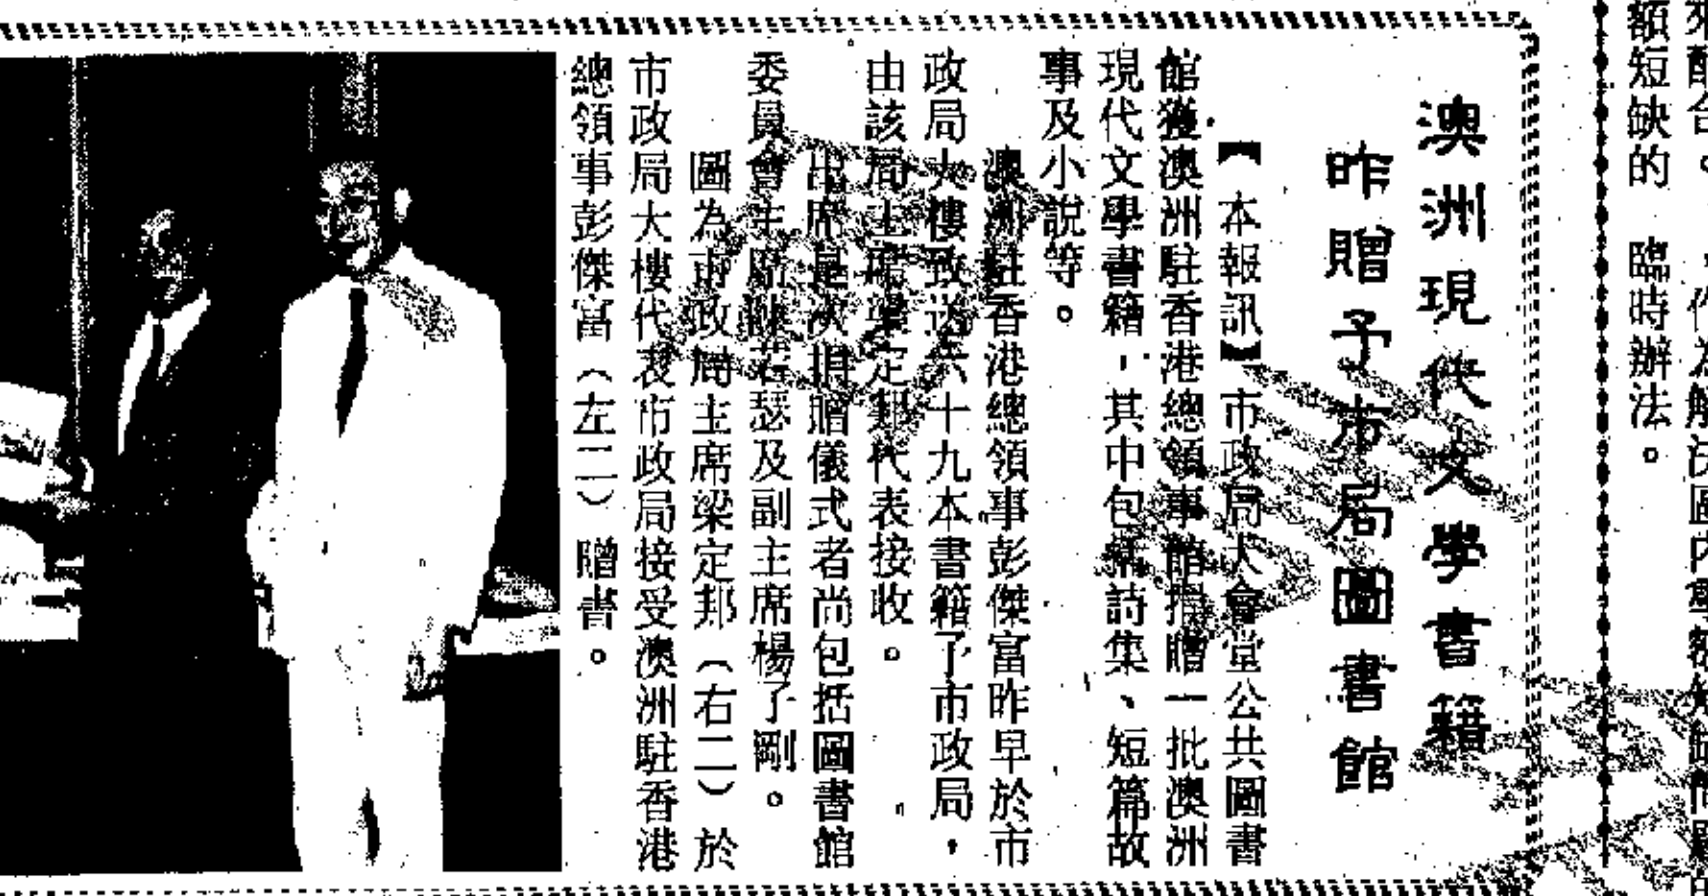 額短缺的 臨時辦法。
澳洲現代文學書籍
昨贈予市局圖書館
【本報訊】市政局大會堂公共圖書
館獲澳洲駐香港總領事館捐贈一批澳洲
現代文學書籍，其中包括詩集、短篇故
事及小說等。
澳洲駐香港總領事彭傑富昨早於市
政局大樓致送六十九本書籍了市政局，
由該局主席梁定邦代表接收。
出席是次捐贈儀式者尚包括圖書館
委員會主席陳若瑟及副主席楊了剛。
圖為市政局主席梁定邦（右二）於
市政局大樓代表市政局接受澳洲駐香港
總領事彭傑富（左二）贈書。